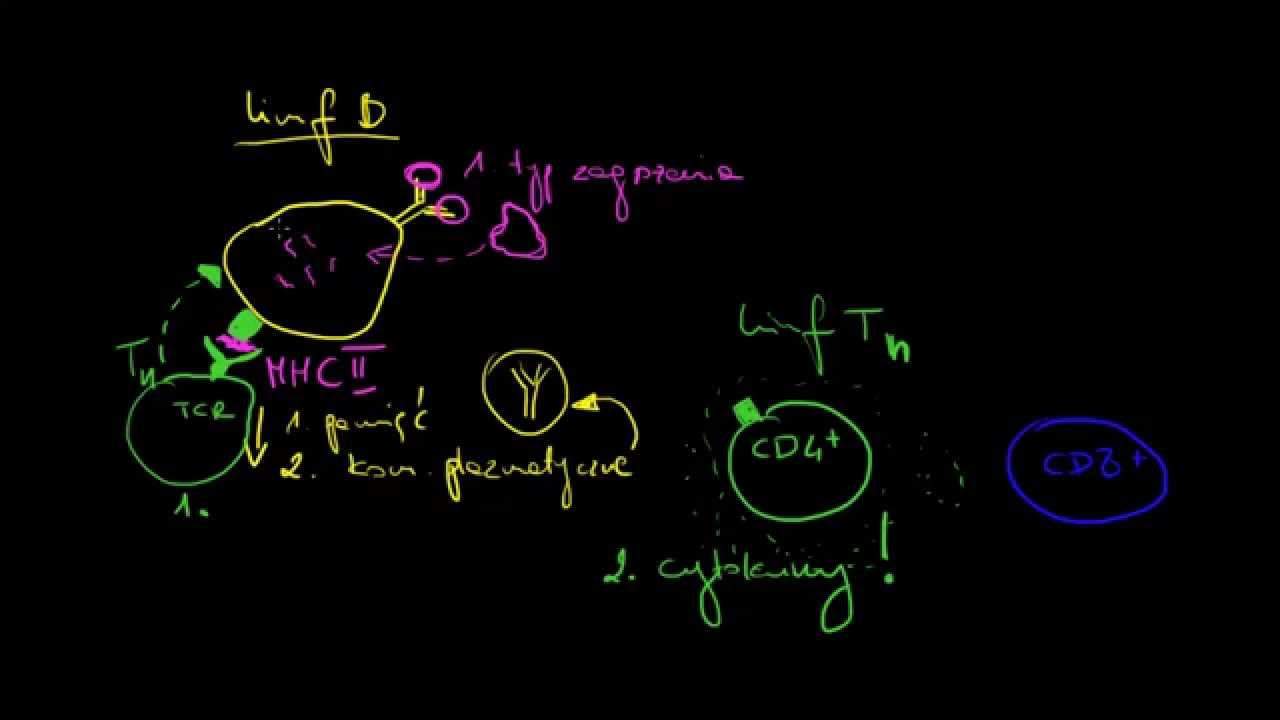 limf B
1. typ zagrożenia
limf Th
Th
MHC II
TCR
1. pamięć
2. kom. plazmatyczne
CD4+
CD8+
1.
2. cytokiny!